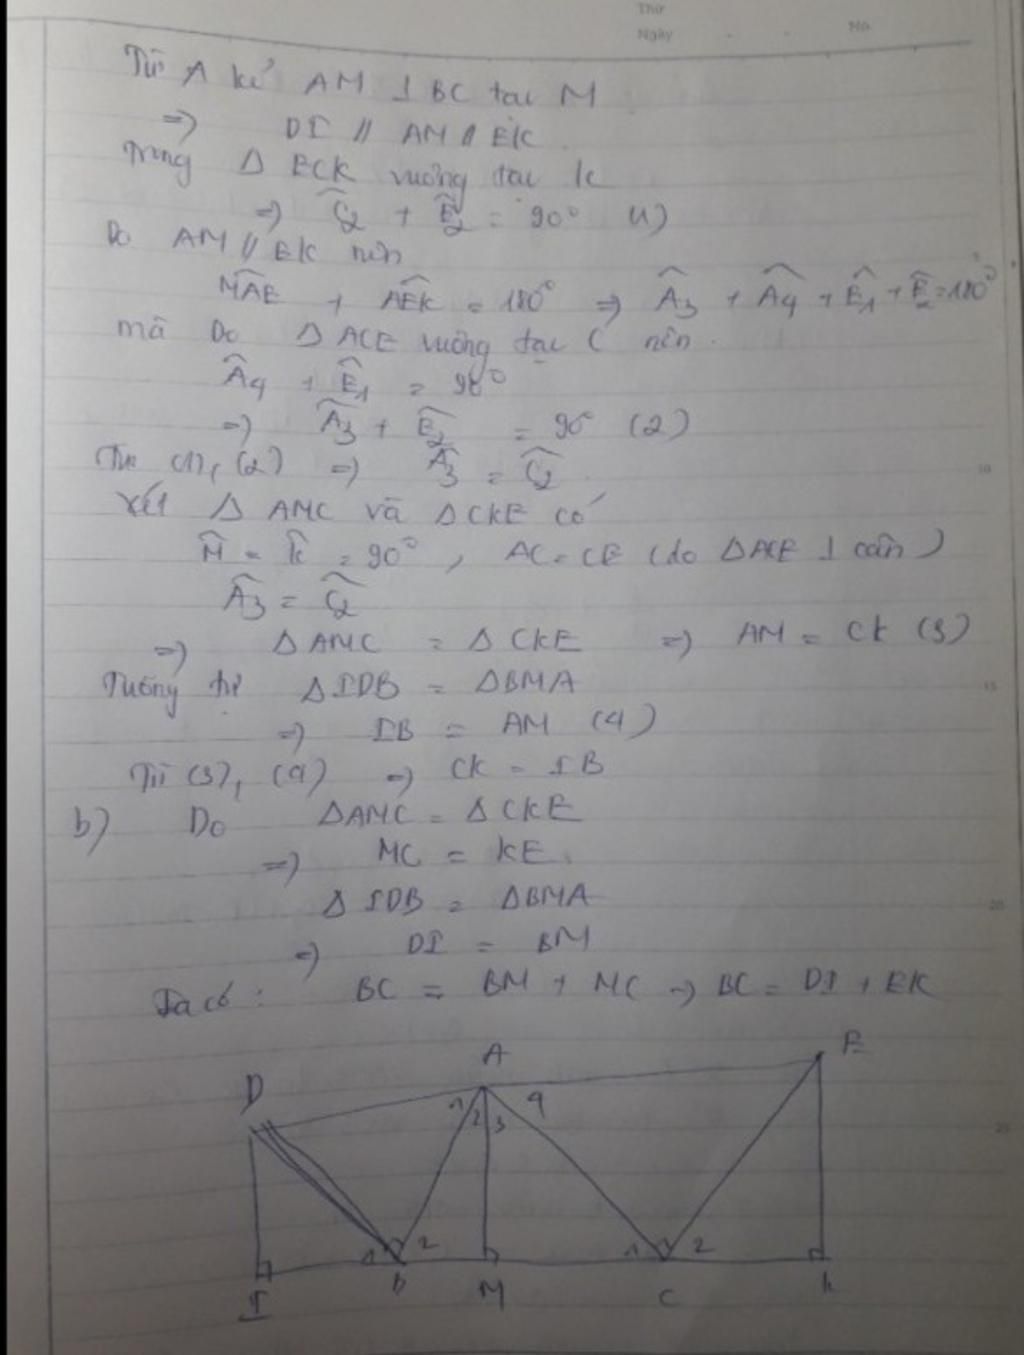 Thứ
Ngày . . No.
Từ A kẻ AM ⊥ BC tại M
=> DI // AM // EK
Trong Δ ECK vuông tại K
=> Ĉ2 + Ê2 = 90° (1)
Do AM // EK nên
MAE + AEK = 180° => Â3 + Â4 + Ê1 + Ê2 = 180°
mà Do Δ ACE vuông tại C nên
Â4 + Ê1 = 90°
=> Â3 + Ê2 = 90° (2)
Từ (1), (2) => Â3 = Ĉ2
Xét Δ AMC và Δ CKE có
M̂ = K̂ = 90°, AC = CE (do ΔACE ⊥ cân)
Â3 = Ĉ2
=> Δ AMC = Δ CKE => AM = CK (3)
Tương tự Δ IDB = Δ BMA
=> IB = AM (4)
Từ (3), (4) => CK = IB
b) Do ΔAMC = Δ CKE
=> MC = KE
Δ IDB = ΔBMA
=> DI = BM
Ta có: BC = BM + MC => BC = DI + EK
A E
D
1 2 3 4
1 2 1 2
I B M C K
10
15
20
25